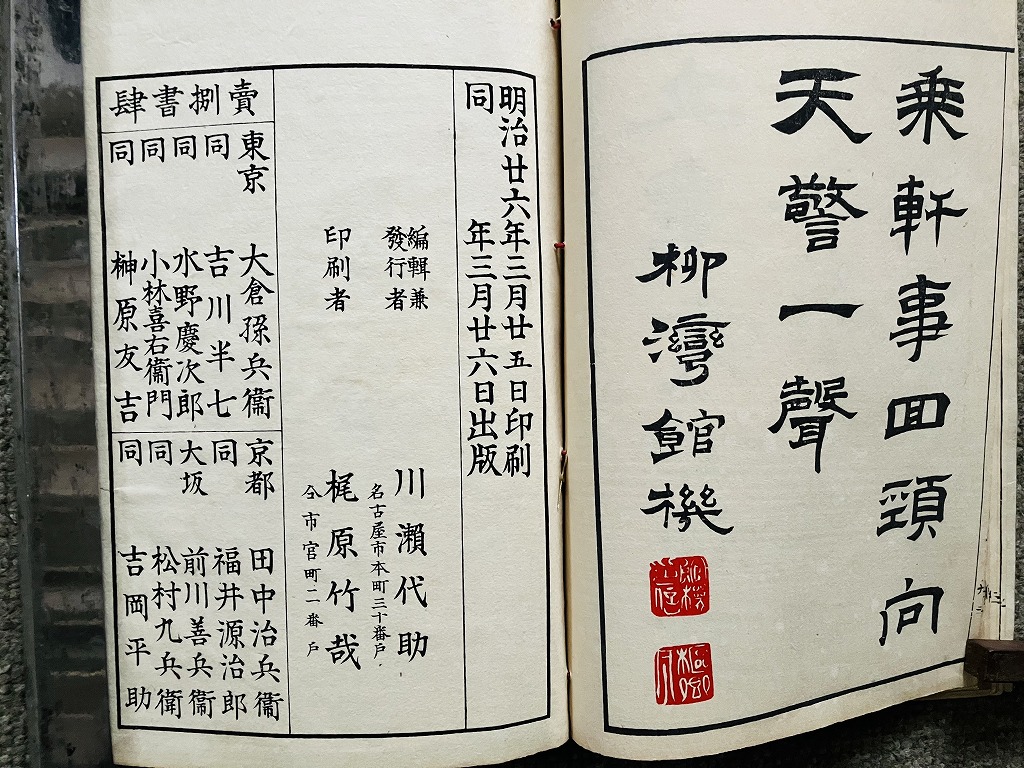 乗軒事回頸向
天警一聲
柳灣館機
明治廿六年三月廿五日印刷
同年三月廿六日出版
編輯兼
發行者
川瀨代助
名古屋市本町三十番戶
印刷者
梶原竹哉
仝市官町二番戶
賣捌書肆
東京 大倉孫兵衞
同 吉川半七
同 水野慶次郎
同 小林喜右衞門
同 榊原友吉
京都 田中治兵衞
同 福井源治郎
大坂 前川善兵衞
同 松村九兵衞
同 吉岡平助